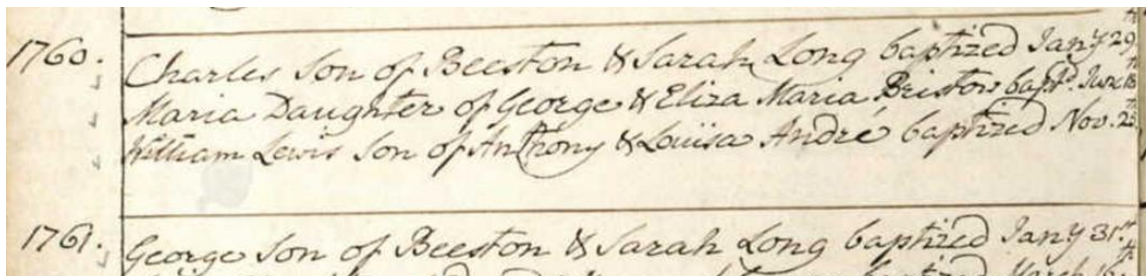 1760. Charles Son of Beeston & Sarah Long baptized Jany 29
Maria Daughter of George & Eliza Maria Bristow bapt.d June 18
William Lewis Son of Anthony & Louisa André baptized Nov. 2
1761. George Son of Beeston & Sarah Long baptized Jany 31.st